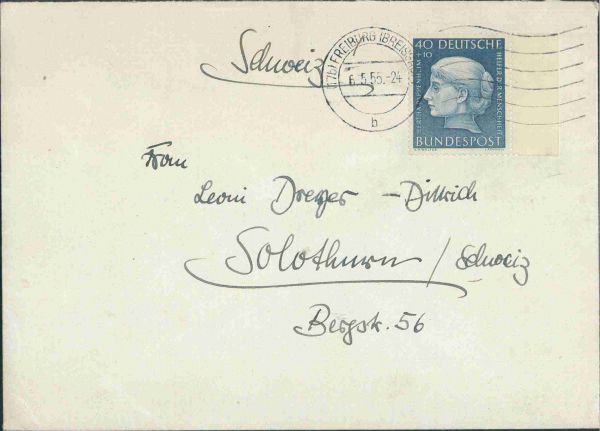 Schweiz
(17b) FREIBURG (BREISGAU
6.5.55.-24
b
40 DEUTSCHE
+10
BERTHA PAPPENHEIM +
HELFER D. MENSCHHEIT
BUNDESPOST
Frau
Leoni Dreyer - Dittrich
Solothurn / Schweiz
Bergstr. 56